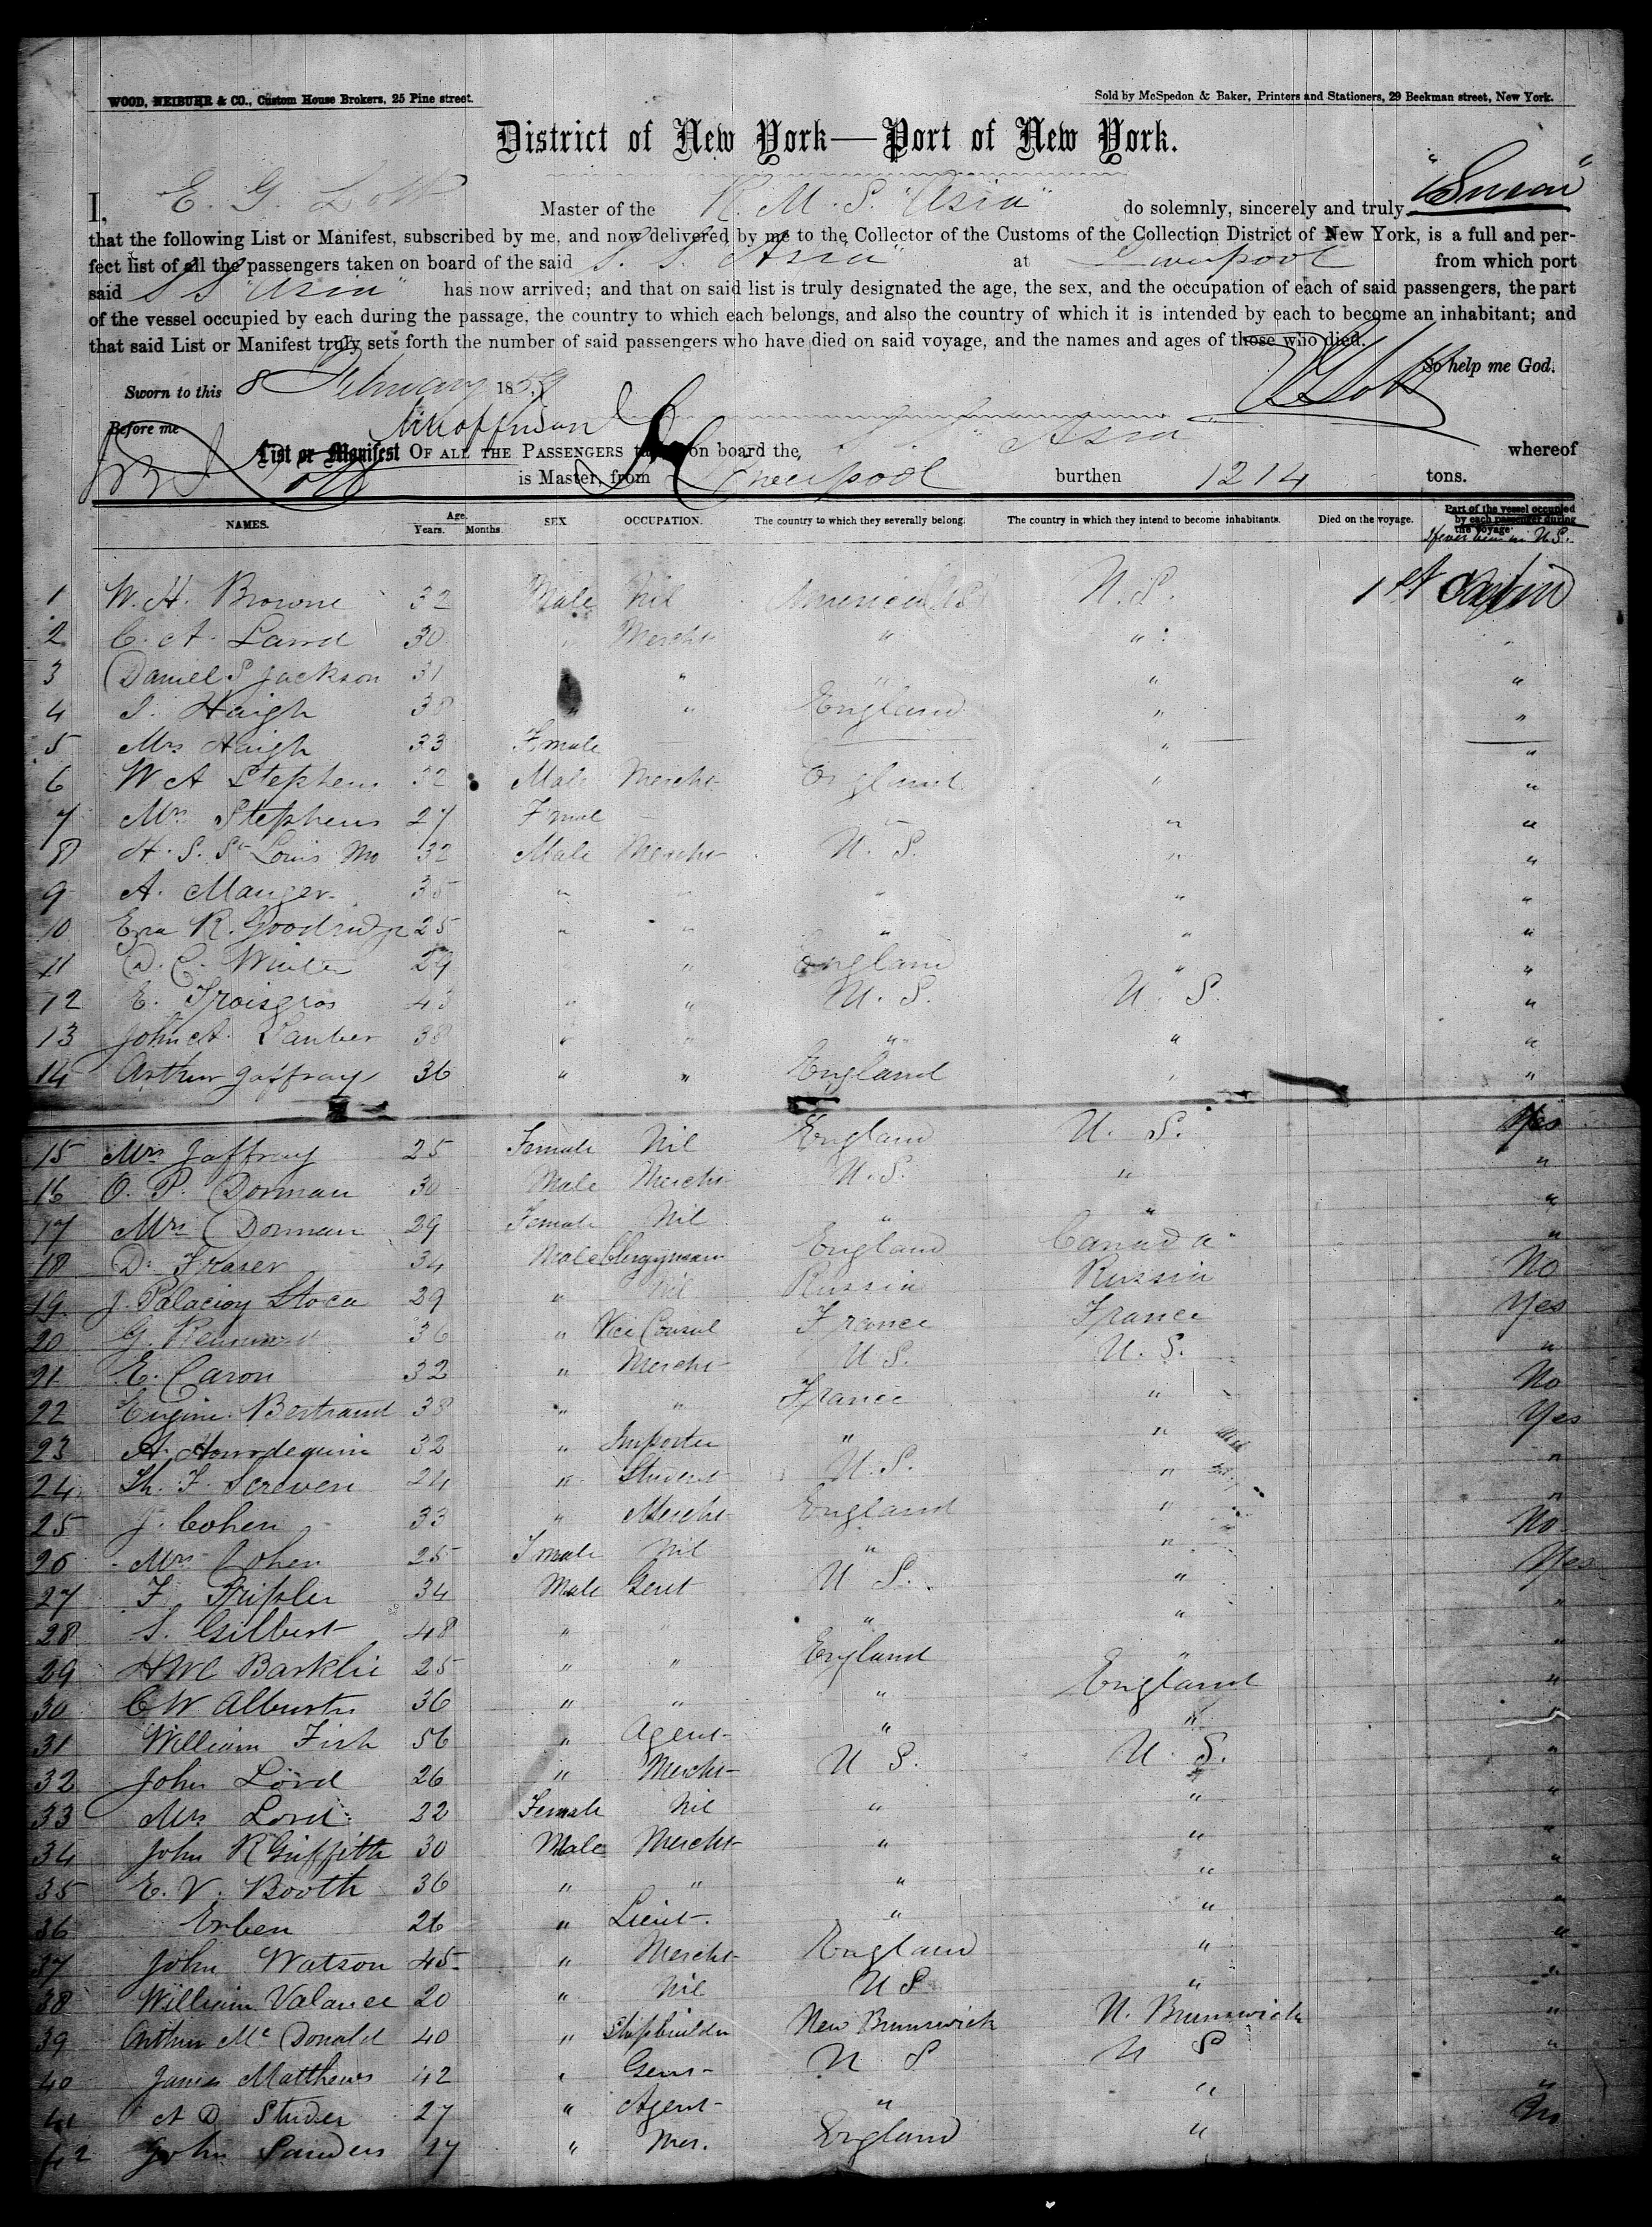 WOOD, NEIBUHR & CO., Custom House Brokers, 25 Pine street.
Sold by McSpedon & Baker, Printers and Stationers, 29 Beekman street, New York.
District of New York—Port of New York.
I, E. G. Lott Master of the R. M. S. "Asia" do solemnly, sincerely and truly "Swear"
that the following List or Manifest, subscribed by me, and now delivered by me to the Collector of the Customs of the Collection District of New York, is a full and per-
fect list of all the passengers taken on board of the said S. S. "Asia" at Liverpool from which port
said S S "Asia" has now arrived; and that on said list is truly designated the age, the sex, and the occupation of each of said passengers, the part
of the vessel occupied by each during the passage, the country to which each belongs, and also the country of which it is intended by each to become an inhabitant; and
that said List or Manifest truly sets forth the number of said passengers who have died on said voyage, and the names and ages of those who died.
So help me God.
Sworn to this 8 February 1859 E G Lott
Before me
List or Manifest OF ALL THE PASSENGERS on board the, S. S. "Asia" whereof
Lott is Master, from Liverpool burthen 1214 tons.
NAMES. Age. Years. Months. SEX. OCCUPATION. The country to which they severally belong. The country in which they intend to become inhabitants. Died on the voyage. Part of the vessel occupied by each passenger during the voyage.
1 W. H. Browne 32 Male Nil America US U. S. 1st Cabin
2 C. A. Laird 30 " Mercht " " "
3 Daniel S Jackson 31 " " " "
4 J. Haigh 38 " " England " "
5 Mrs Haigh 33 Female " "
6 W A Stephens 32 Male Mercht England " "
7 Mrs Stephens 27 Female " " "
8 H. S. St Louis Mo 32 Male Mercht U. S. " "
9 A. Mauger 35 " " " " "
10 Ezra R. Goodridge 25 " " " " "
11 D. C. Winter 29 " England " "
12 E. Troisgros 43 " " U. S. U. S. "
13 John A. Tauber 38 " " " " "
14 Arthur Jaffray 36 " " England " "
15 Mrs Jaffray 25 Female Nil England U. S. Yes
16 O. P. Dorman 30 Male Mercht U. S. " "
17 Mrs Dorman 29 Female Nil " " "
18 D. Fraser 34 Male Clergyman England Canada "
19 J. Palacioy Stoca 29 " Nil Russia Russia No
20 G. 36 " Vice Consul France France Yes
21 E. Caron 32 " Mercht U S. U. S. "
22 Eugine Bertrand 38 " " France " No
23 A. Hourdequin 32 " Importer " " Yes
24 Th. F. Screven 24 " Student U. S. " "
25 J. Cohen 33 " Mercht England " "
26 Mrs Cohen 25 Female Nil " " No
27 F. Tripler 34 Male Gent U S. " Yes
28 S. Gilbert 48 " " " " "
29 HWC Barklie 25 " " England " "
30 C W Alburtis 36 " " " England "
31 William Fish 56 " Agent " " "
32 John Lord 26 " Mercht U S. U. S. "
33 Mrs Lord 22 Female Nil " " "
34 John R Griffith 30 Male Mercht " " "
35 E. V. Booth 36 " " " " "
36 Erben 26 " Lieut. " " "
37 John Watson 45 " Mercht England " "
38 William Valance 20 " Nil U S " "
39 Arthur Mc Donald 40 " Shipbuilder New Brunswick N. Brunswick "
40 James Matthews 42 " Gent U S U S "
41 A D Studer 27 " Agent " " "
42 John Sanders 27 " Mer. England " No